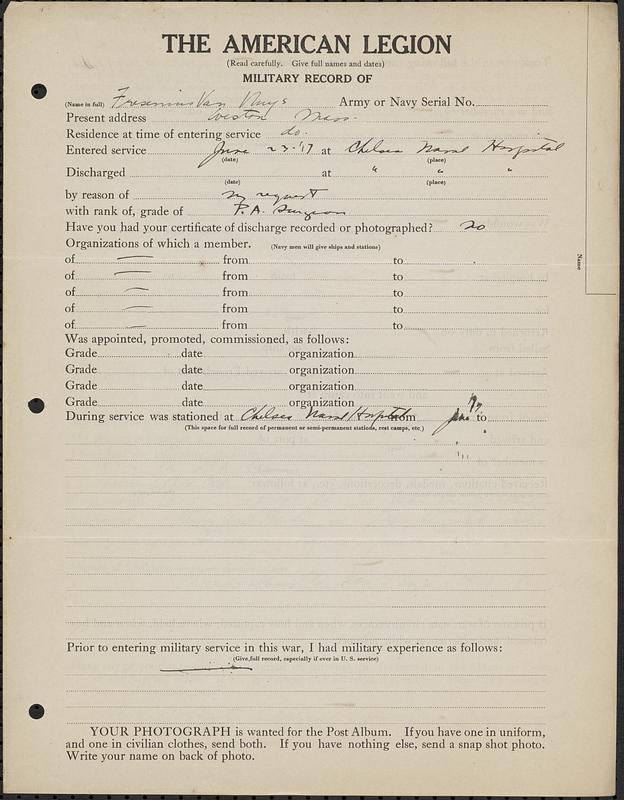 THE AMERICAN LEGION
(Read carefully. Give full names and dates)
MILITARY RECORD OF
(Name in full) Fresenius Van Nuys Army or Navy Serial No.
Present address Weston Mass.
Residence at time of entering service do.
Entered service June 23-'17 at Chelsea Naval Hospital
(date) (place)
Discharged at " " "
(date) (place)
by reason of my request
with rank of, grade of P. A. Surgeon
Have you had your certificate of discharge recorded or photographed? no
Organizations of which a member. (Navy men will give ships and stations)
of — from to
of — from to
of — from to
of — from to
of — from to
Was appointed, promoted, commissioned, as follows:
Grade date organization
Grade date organization
Grade date organization
Grade date organization
During service was stationed at Chelsea Naval Hospital from June '17 to
(This space for full record of permanent or semi-permanent stations, rest camps, etc.)
Prior to entering military service in this war, I had military experience as follows:
(Give full record, especially if ever in U. S. service)
YOUR PHOTOGRAPH is wanted for the Post Album. If you have one in uniform,
and one in civilian clothes, send both. If you have nothing else, send a snap shot photo.
Write your name on back of photo.
Name